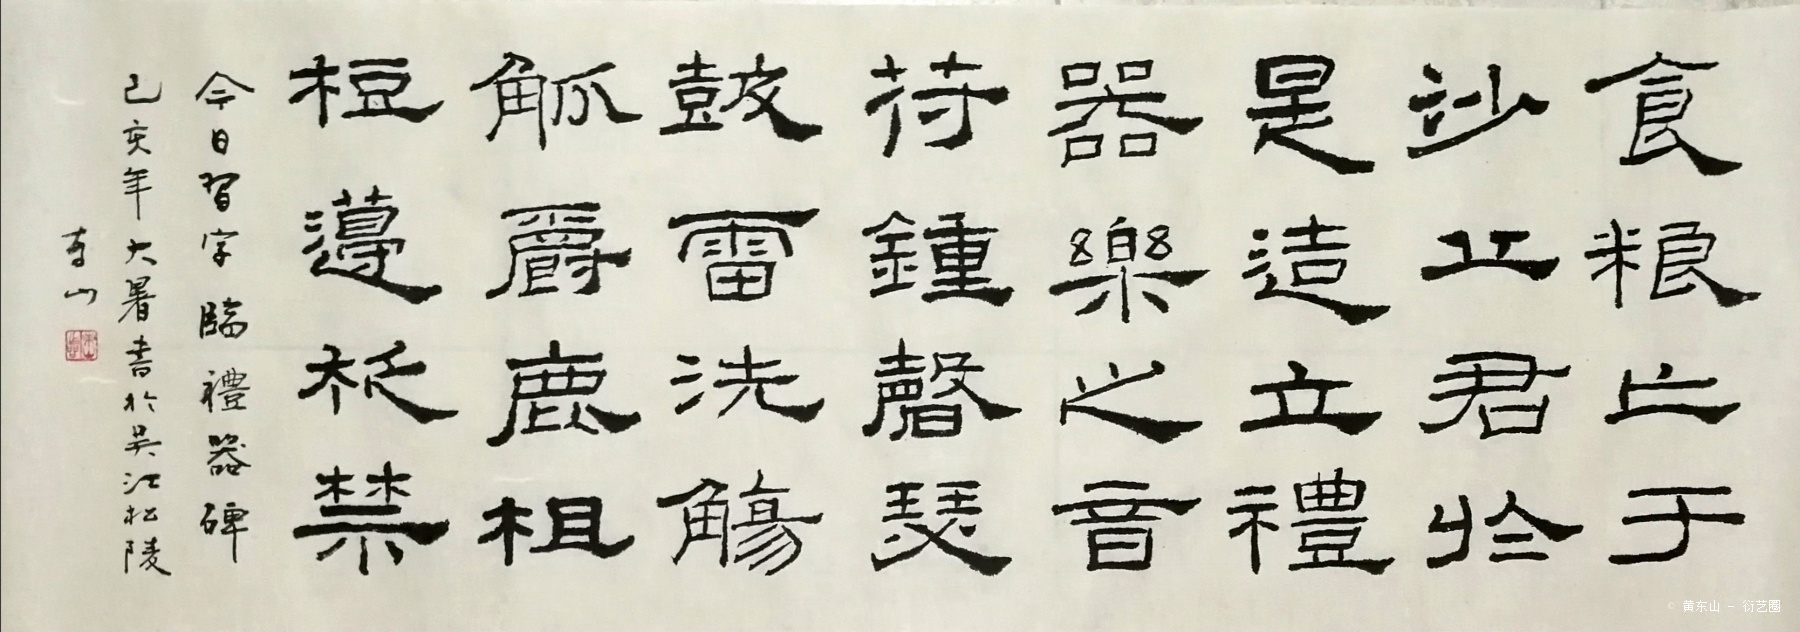 食粮亡于
沙丘君於
是造立禮
器樂之音
苻鍾磬瑟
鼓雷洗觴
觚爵鹿柤
梪籩柉禁
今日習字臨禮器碑
己亥年大暑書於吳江松陵
东山
© 黄东山 - 衍艺圈